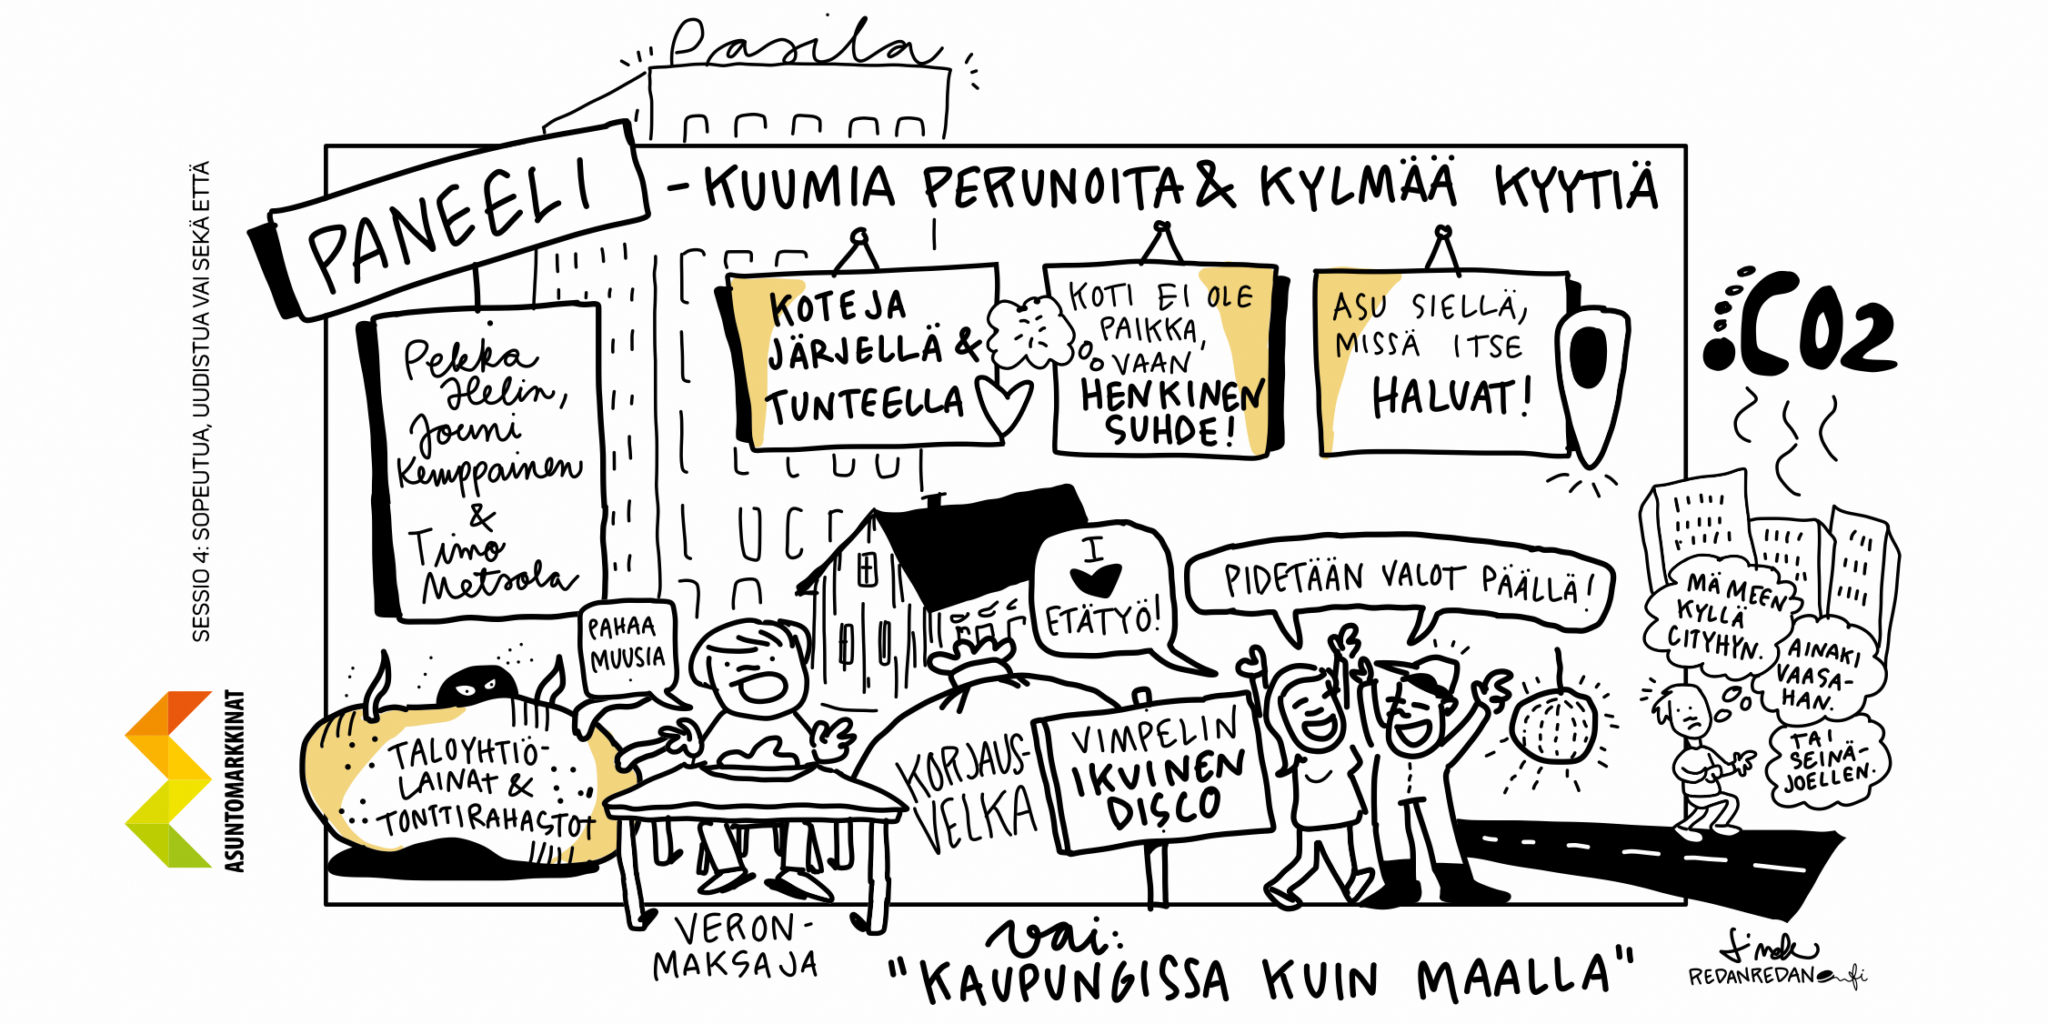 Pasila
PANEELI
- KUUMIA PERUNOITA & KYLMÄÄ KYYTIÄ
SESSIO 4: SOPEUTUA, UUDISTUA VAI SEKÄ ETTÄ
ASUNTOMARKKINAT
Pekka
Helin,
Jouni
Kemppainen
&
Timo
Metsola
KOTEJA
JÄRJELLÄ &
TUNTEELLA
KOTI EI OLE
PAIKKA,
VAAN
HENKINEN
SUHDE!
ASU SIELLÄ,
MISSÄ ITSE
HALUAT!
CO2
PAHAA
MUUSIA
TALOYHTIÖ-
LAINAT &
TONTTIRAHASTOT
VERON-
MAKSAJA
KORJAUS-
VELKA
I
ETÄTYÖ!
VIMPELIN
IKUINEN
DISCO
PIDETÄÄN VALOT PÄÄLLÄ!
MÄ MEEN
KYLLÄ
CITYHYN.
AINAKI
VAASA-
HAN.
TAI
SEINÄ-
JOELLEN.
vai:
"KAUPUNGISSA KUIN MAALLA"
REDANREDAN